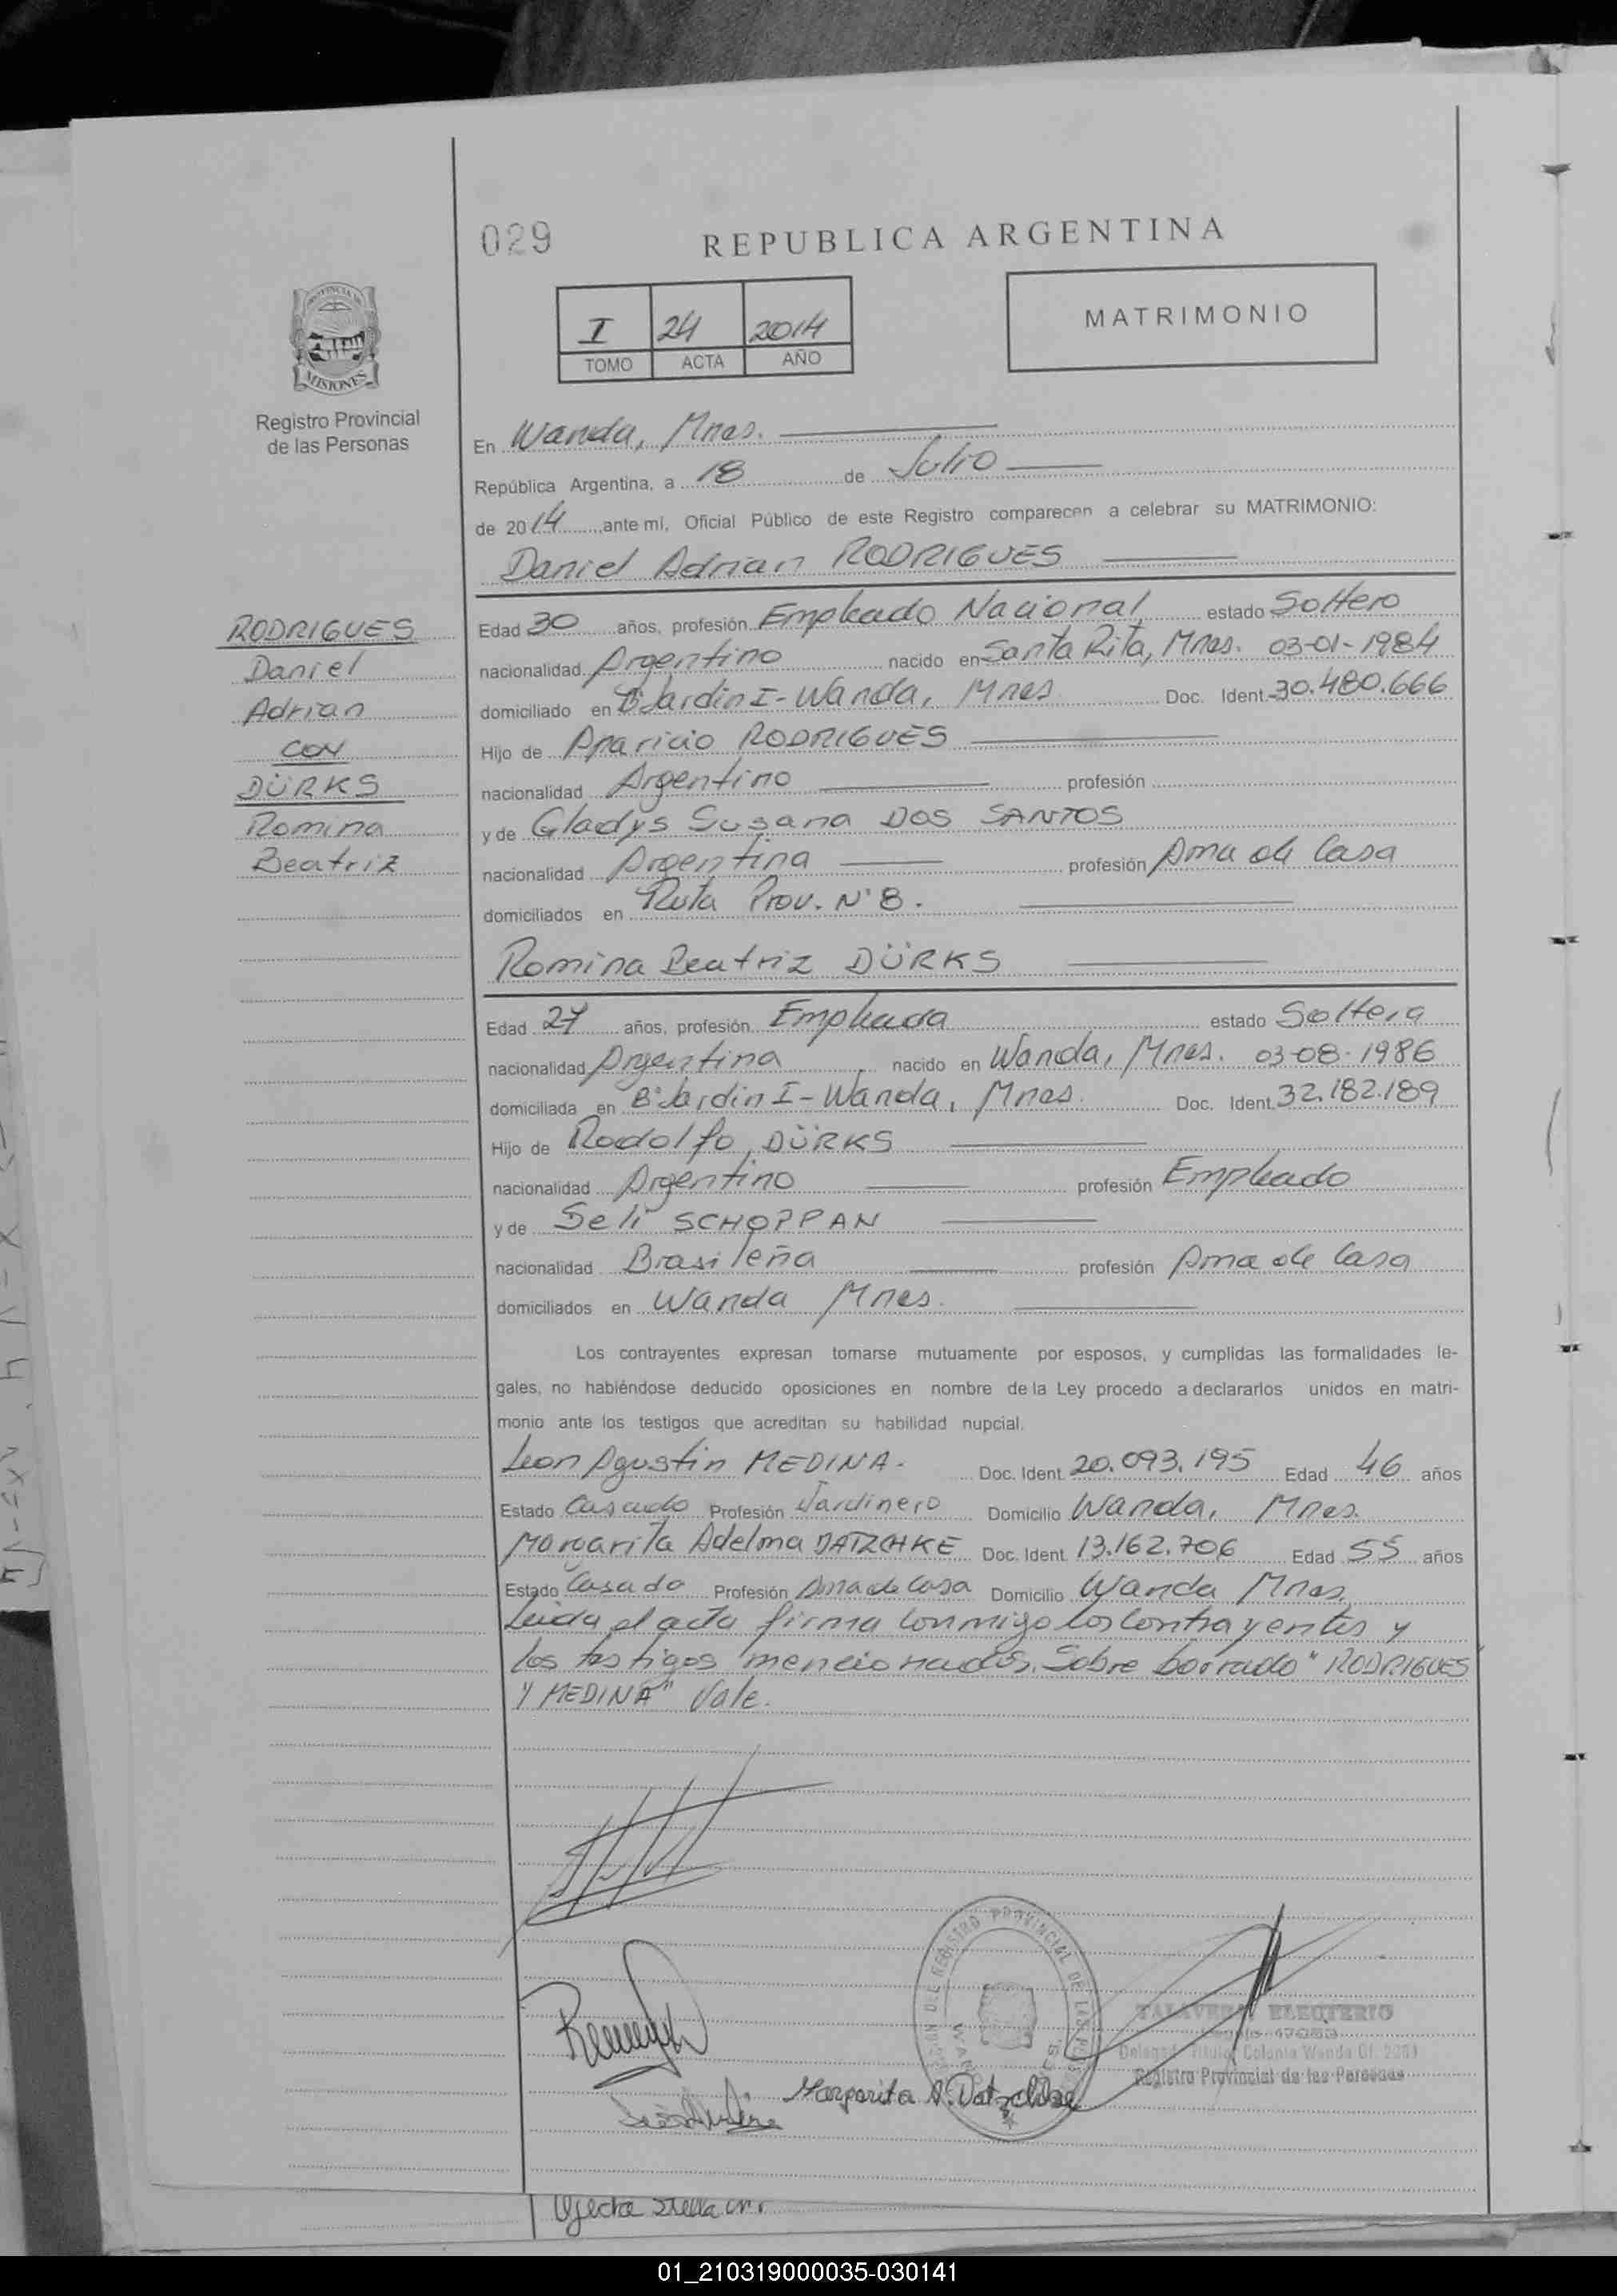 029
REPUBLICA ARGENTINA
I 24 2014
TOMO ACTA AÑO
MATRIMONIO
PROVINCIA DE
MISIONES
Registro Provincial
de las Personas
En Wanda, Mnes.
República Argentina, a 18 de Julio
de 2014, ante mí, Oficial Público de este Registro comparecen a celebrar su MATRIMONIO:
Daniel Adrian RODRIGUES
RODRIGUES
Daniel
Adrian
CON
DÜRKS
Romina
Beatriz
Edad 30 años, profesión Empleado Nacional estado Soltero
nacionalidad Argentino nacido en Santa Rita, Mnes. 03-01-1984
domiciliado en B° Jardin I - Wanda, Mnes Doc. Ident. 30.480.666
Hijo de Aparicio RODRIGUES
nacionalidad Argentino profesión
y de Gladys Susana DOS SANTOS
nacionalidad Argentina profesión Ama de Casa
domiciliados en Ruta Prov. N° 8.
Romina Beatriz DÜRKS
Edad 27 años, profesión Empleada estado Soltera
nacionalidad Argentina nacido en Wanda, Mnes. 03-08-1986
domiciliada en B° Jardin I - Wanda, Mnes. Doc. Ident. 32.182.189
Hijo de Rodolfo DÜRKS
nacionalidad Argentino profesión Empleado
y de Seli SCHOPPAN
nacionalidad Brasileña profesión Ama de Casa
domiciliados en Wanda Mnes.
Los contrayentes expresan tomarse mutuamente por esposos, y cumplidas las formalidades le-
gales, no habiéndose deducido oposiciones en nombre de la Ley procedo a declararlos unidos en matri-
monio ante los testigos que acreditan su habilidad nupcial.
Leon Agustin MEDINA. Doc. Ident. 20.093.195 Edad 46 años
Estado Casado Profesión Jardinero Domicilio Wanda, Mnes.
Margarita Adelma DATZCHKE Doc. Ident. 13.162.706 Edad 55 años
Estado Casada Profesión Ama de Casa Domicilio Wanda Mnes.
Leida el acta firma conmigo los contrayentes y
los testigos mencionados. Sobre borrado "RODRIGUES
Y MEDINA" Vale.
REGISTRO PROVINCIAL DE LAS
TALAVERA ELEUTERIO
Delegado Titular Colonia Wanda
Registro Provincial de las Personas
Margarita A. Datzchke
Stella
01_210319000035-030141